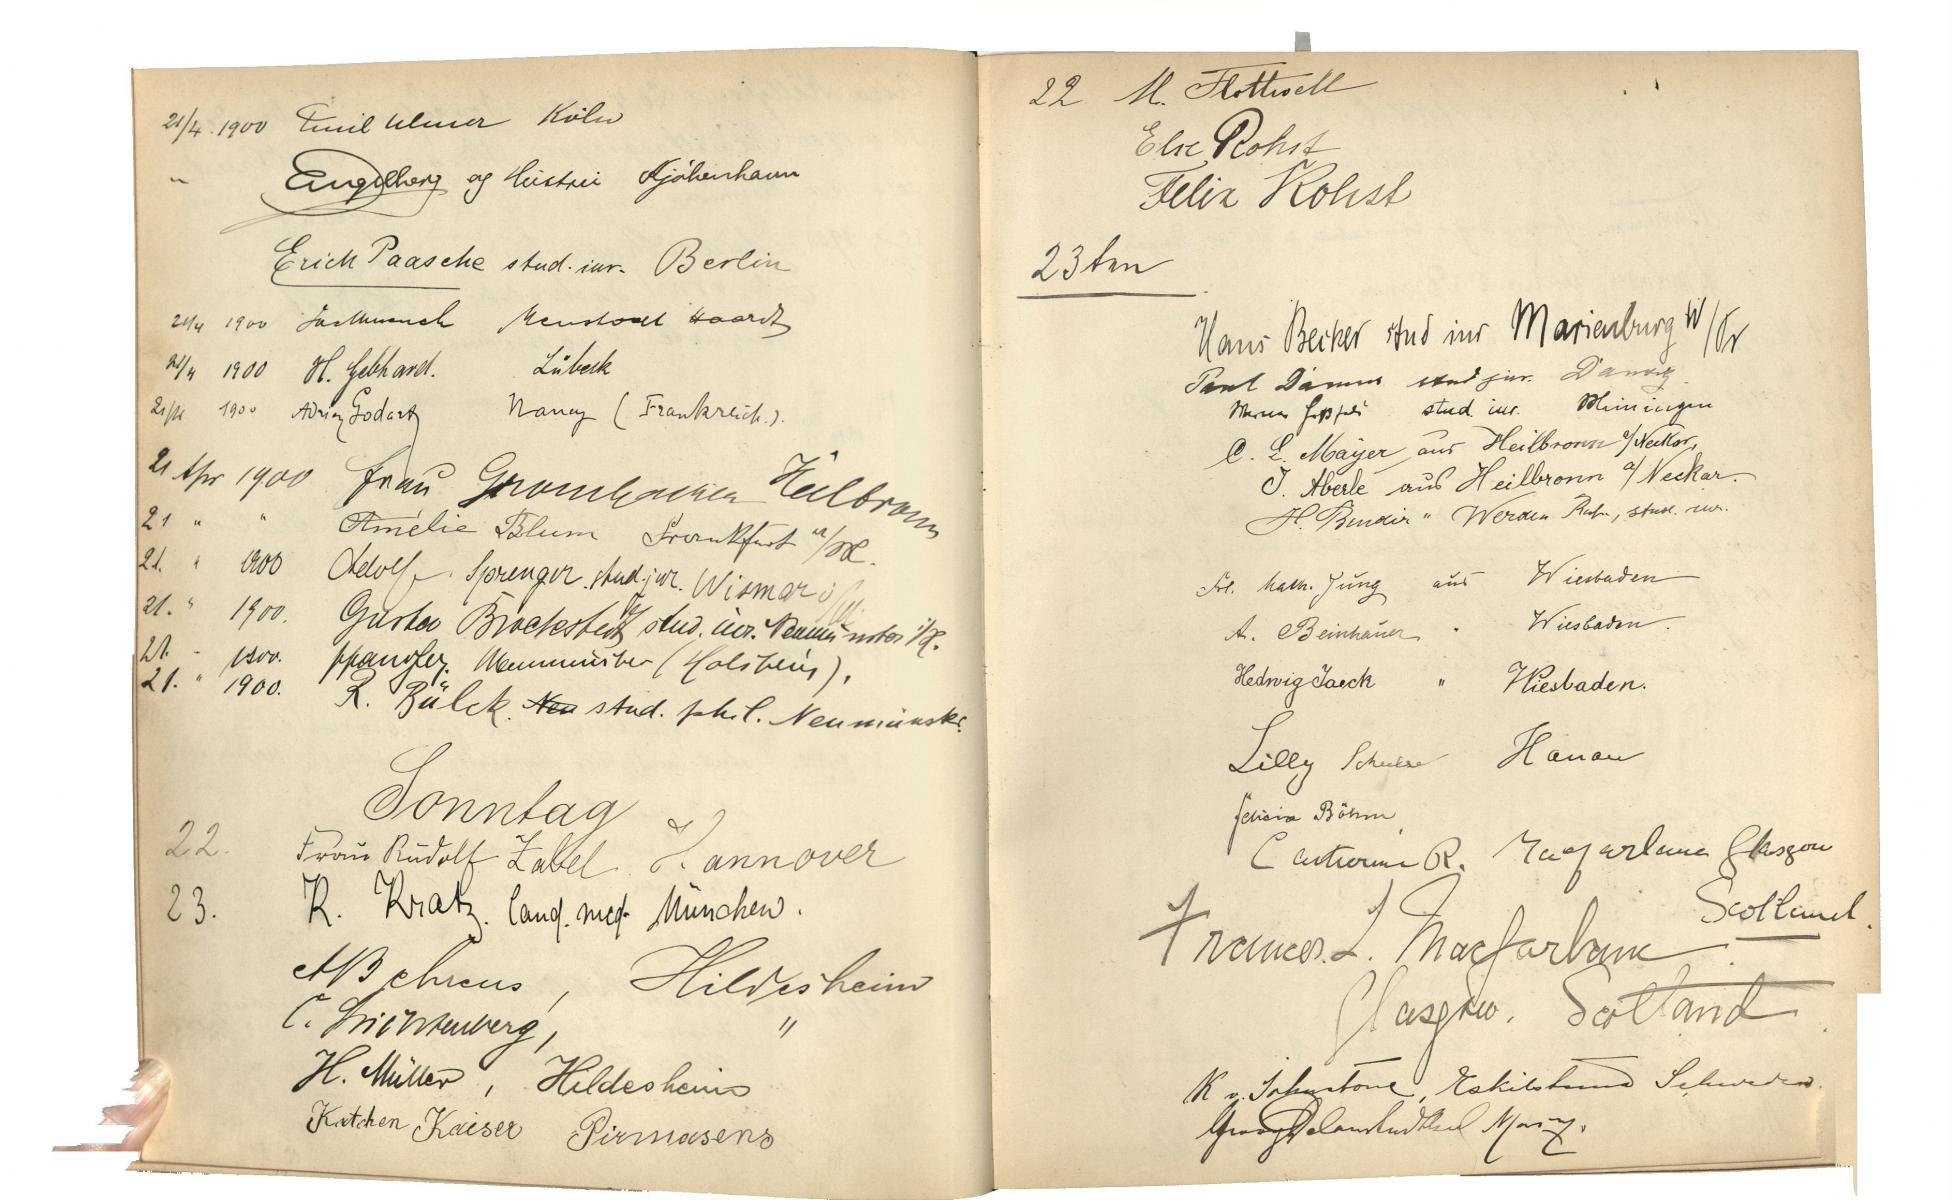 21/4. 1900 Emil Ulmer Köln
" Engelberg og Hustru Kjöbenhavn
Erich Paasche stud. iur. Berlin
21/4 1900 Neustadt Haardt
21/4 1900 H. Gebhard. Lübeck
21/4 1900 Adrien Godart Nancy (Frankreich.).
21 Apr 1900 Frau Heilbronn
21 " " Amélie Blum Frankfurt a/M.
21. " 1900 Adolf Sprenger stud. jur. Wismar
21. " 1900. Gustav Brockstedt stud. iur. Neumünster i/H.
21. " 1900. Spangler. Neumünster (Holstein).
21. " 1900. R. Bülck. Neu stud. phil. Neumünster.
Sonntag
22. Frau Rudolf Zabel Hannover
23. R. Kratz. cand. med. München.
A Behrens, Hildesheim
C. Lichtenberg, "
H. Müller, Hildesheim
Kätchen Kaiser Pirmasens
22 M. Flottwell
Else Rohst
Felix Rohst
23ten
Hans Becker stud iur Marienburg W/Pr
Paul Damm stud jur. Danzig
Werner stud. iur. Meiningen
C. E. Mayer aus Heilbronn a/Neckar,
J. Aberle aus Heilbronn a/Neckar.
H. Bender " Werden Ruhr, stud. iur.
Frl. Math. Jung aus Wiesbaden
A. Beinhauer " Wiesbaden.
Hedwig Jaeck " Wiesbaden.
Lilly Schulze Hanau
Felicia Böhm
Catherine R. Macfarlane Glasgow
Scotland.
Frances. L. Macfarlane
Glasgow. Scotland
K v. Johnstone, Eskilstuna Schweden.
Georg